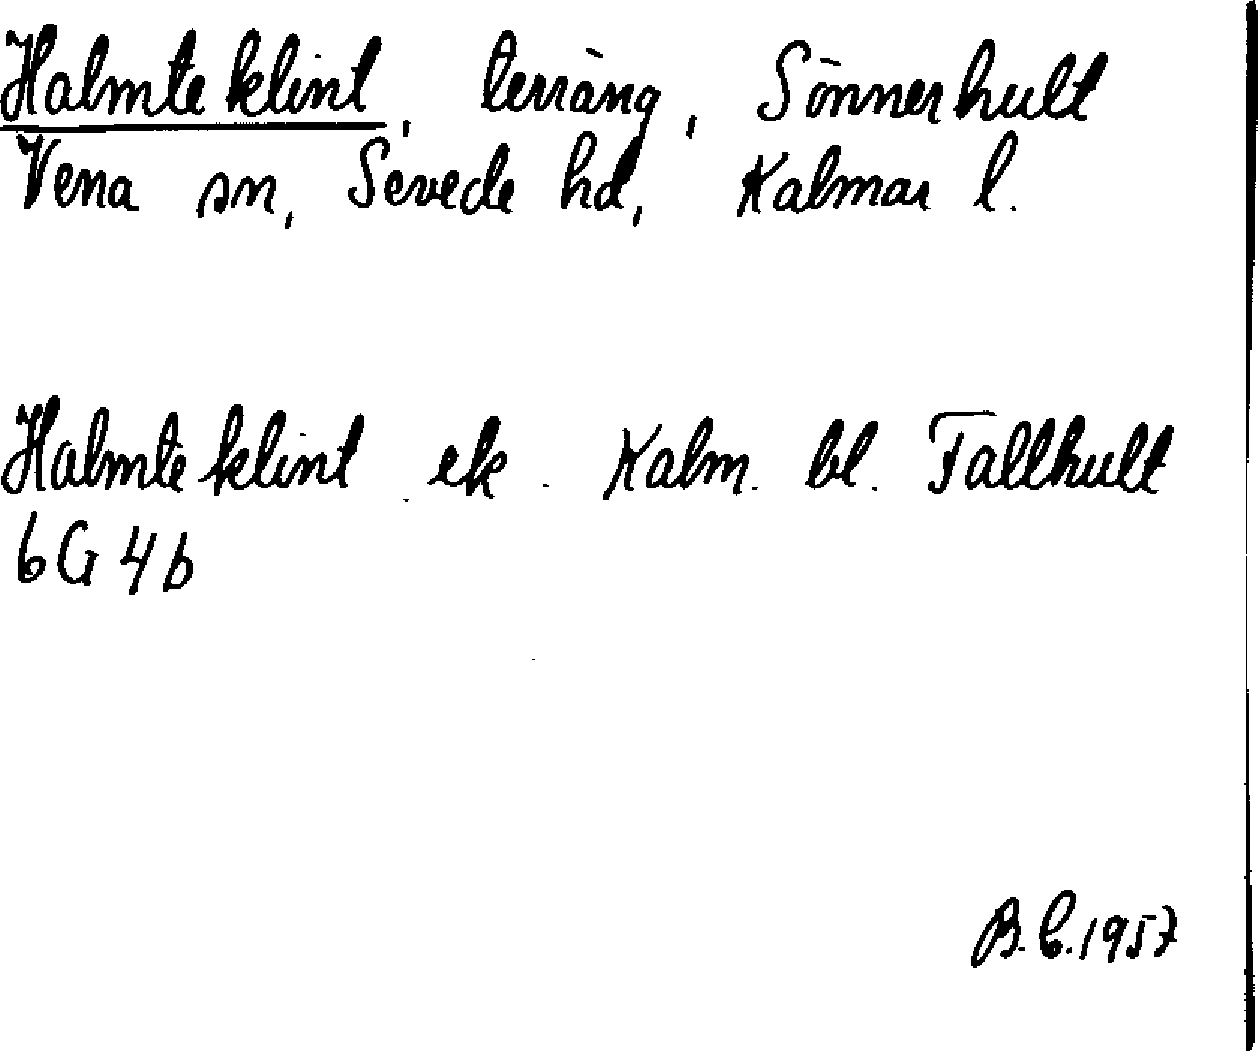 Halmteklint, terräng, Sönnerhult
Vena sn, Sevede hd, Kalmar l.
Halmteklint ek. Kalm. bl. Fallhult
6G 4b
B.C. 1957